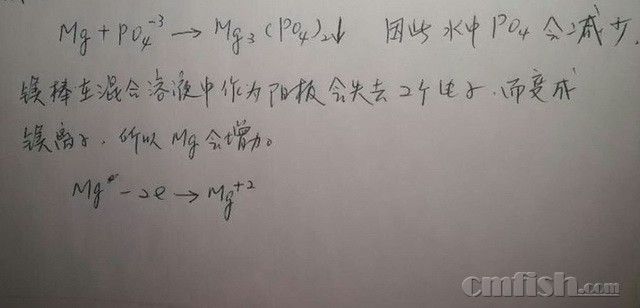 Mg + PO₄⁻³ → Mg₃(PO₄)₂↓ 因此水中PO₄会减少.
镁棒在混合溶液中作为阳极会失去2个电子.而变成
镁离子,所以Mg会增加。
Mg - 2e → Mg⁺²
cmfish.com